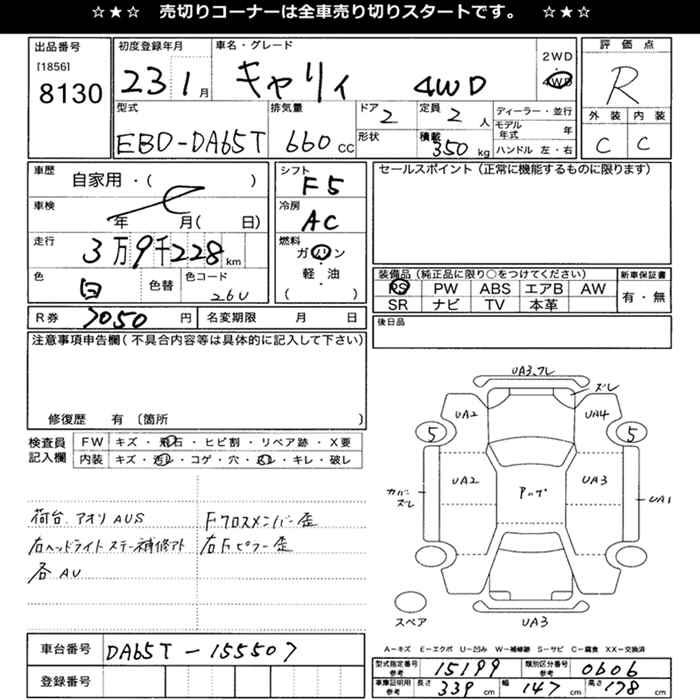 ☆★☆ 売切りコーナーは全車売り切りスタートです。 ☆★☆
出品番号
[1856]
8130
初度登録年月
23 1月
車名・グレード
キャリィ 4WD
2WD
4WD
評価点
R
外装 内装
C C
型式
EBD-DA65T
排気量
660 cc
ドア
2
形状
定員
2人
積載
350 kg
ディーラー・並行
モデル年式 年
ハンドル 左・右
車歴
自家用・( )
車検
年 月( 日)
走行
3万9千228 km
色
白
色替
色コード
26U
シフト
F5
冷房
AC
燃料
ガソリン
・
軽・油
( )
セールスポイント(正常に機能するものに限ります)
装備品(純正品に限り○をつけてください)
新車保証書
PS PW ABS エアB AW
SR ナビ TV 本革
有・無
R券 7050 円
名変期限 月 日
後日品
注意事項申告欄(不具合内容等は具体的に記入して下さい)
修復歴 有 〔箇所 〕
検査員
記入欄
FW キズ・飛石・ヒビ割・リペア跡・X要
内装 キズ・汚レ・コゲ・穴・スレ・キレ・破レ
荷台、アオリAUS
右ヘッドライトステー補修アト
各AU
Fクロスメンバー歪
右Fピラー歪
UA3、ワレ
ズレ
UA2 UA4
5 5
UA2 UA3
カバーズレ
UA1
UA3
スペア
A-キズ E-エクボ U-凹み W-補修跡 S-サビ C-腐食 XX-交換済
車台番号
DA65T-155507
登録番号
型式指定番号 参考
15199
類別区分番号 参考
0606
車庫証明用 参考
長さ 339 cm 幅 147 cm 高さ 178 cm